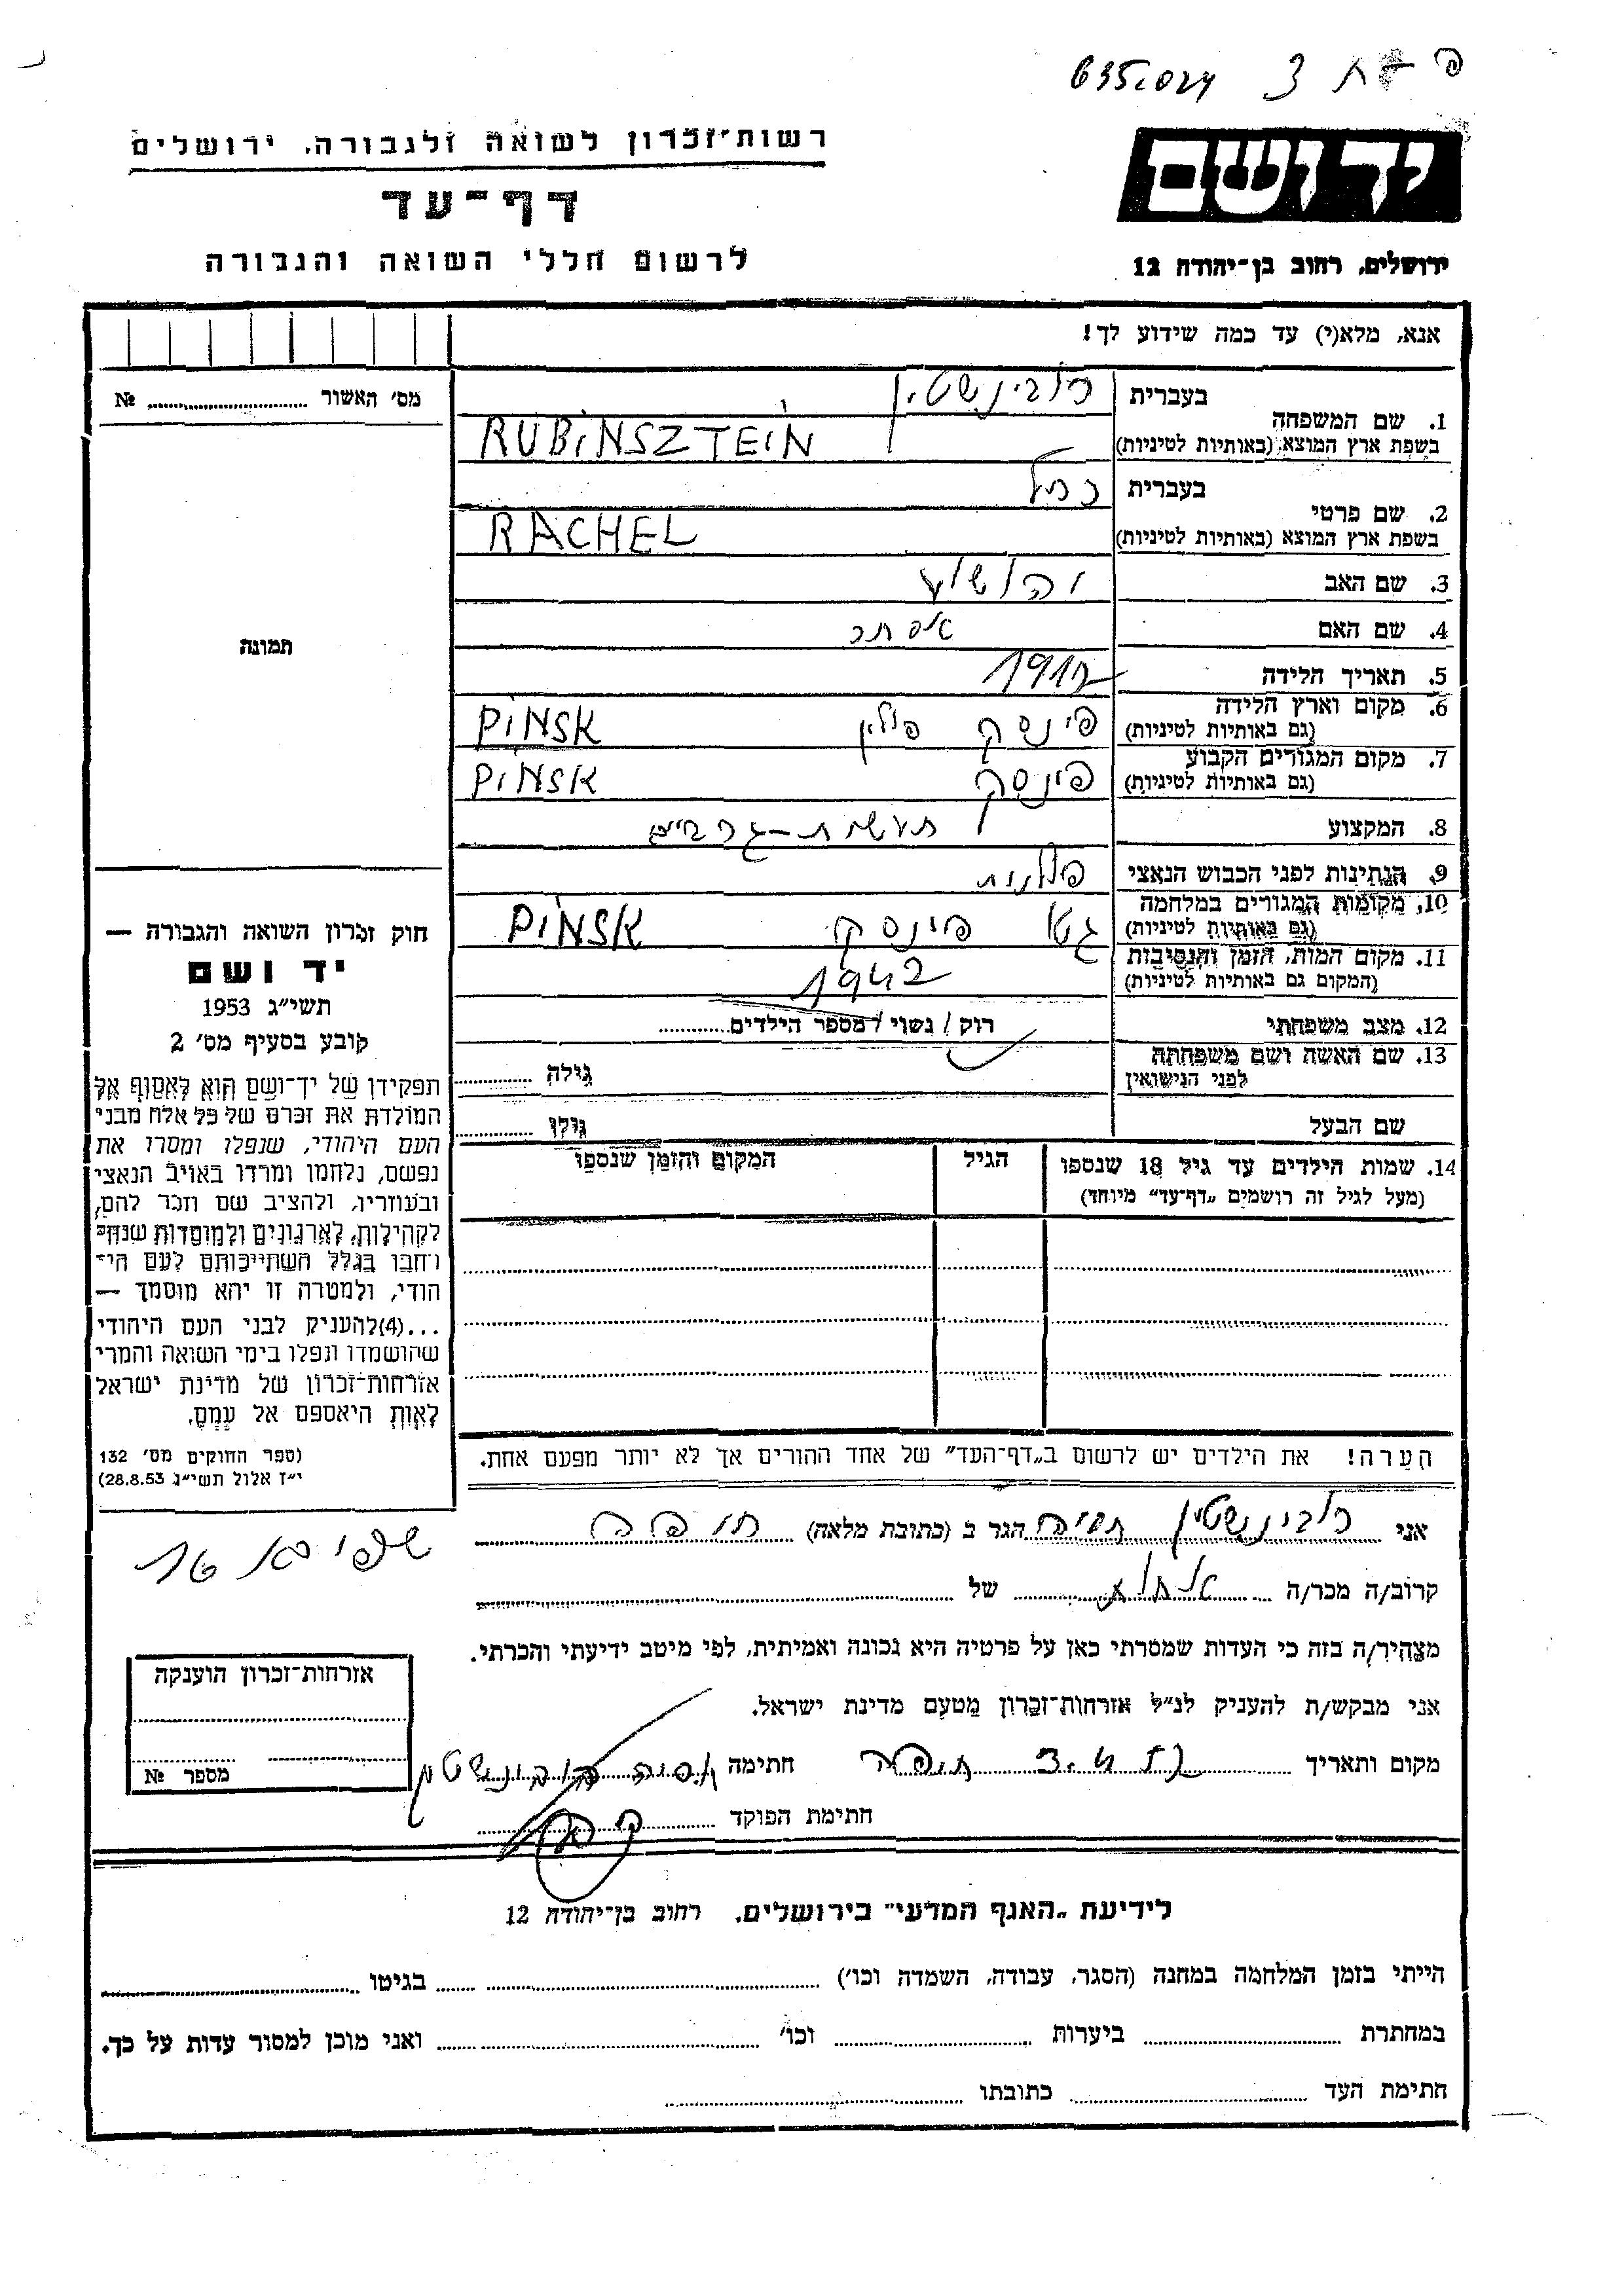 635.024 3
רשות־זכרון לשואה ולגבורה, ירושלים
יד ושם
דף־עד
לרשום חללי השואה והגבורה
ירושלים, רחוב בן־יהודה 12
אנא, מלא(י) עד כמה שידוע לך!
מס' האשור № ....................
תמונה
1. שם המשפחה בעברית רובינשטין
בשפת ארץ המוצא (באותיות לטיניות) RUBINSZTEIN
2. שם פרטי בעברית רחל
בשפת ארץ המוצא (באותיות לטיניות) RACHEL
3. שם האב יהושע
4. שם האם אסתר
5. תאריך הלידה
6. מקום וארץ הלידה (גם באותיות לטיניות) פינסק פולין PINSK
7. מקום המגורים הקבוע (גם באותיות לטיניות) פינסק PINSK
8. המקצוע תעשית-גרביים
9. הנתינות לפני הכבוש הנאצי פולנית
10. מקומות המגורים במלחמה (גם באותיות לטיניות) גטו פינסק PINSK
11. מקום המות, הזמן והנסיבות (המקום גם באותיות לטיניות) 1942
12. מצב משפחתי רוק / נשוי / מספר הילדים............
13. שם האשה ושם משפחתה לפני הנישואין גילה ............
שם הבעל גילו ............
14. שמות הילדים עד גיל 18 שנספו הגיל המקום והזמן שנספו
(מעל לגיל זה רושמים „דף־עד" מיוחד)
חוק זכרון השואה והגבורה —
יד ושם
תשי״ג 1953
קובע בסעיף מס' 2
תפקידן של יד־ושם הוא לאסוף אל
המולדת את זכרם של כל אלה מבני
העם היהודי, שנפלו ומסרו את
נפשם, נלחמו ומרדו באויב הנאצי
ובעוזריו, ולהציב שם וזכר להם,
לקהילות, לארגונים ולמוסדות שנח־
רבו בגלל השתייכותם לעם הי־
הודי, ולמטרה זו יהא מוסמך —
...(4)להעניק לבני העם היהודי
שהושמדו ונפלו בימי השואה והמרי
אזרחות־זכרון של מדינת ישראל
לאות היאספם אל עמם.
(ספר החוקים מס' 132
י״ז אלול תשי״ג 28.8.53)
הערה! את הילדים יש לרשום ב„דף־העד" של אחד ההורים אך לא יותר מפעם אחת.
אני רובינשטין הגר ב (כתובת מלאה) חיפה
שפירא 16
קרוב/ה מכר/ה אחות של
מצהיר/ה בזה כי העדות שמסרתי כאן על פרטיה היא נכונה ואמיתית, לפי מיטב ידיעתי והכרתי.
אני מבקש/ת להעניק לנ״ל אזרחות־זכרון מטעם מדינת ישראל.
מקום ותאריך חיפה חתימה רובינשטין
חתימת הפוקד
אזרחות־זכרון הוענקה
מספר №
לידיעת „האגף המדעי" בירושלים, רחוב בן־יהודה 12
הייתי בזמן המלחמה במחנה (הסגר, עבודה, השמדה וכו') .................... בגיטו ....................
במחתרת .................... ביערות .................... וכו' .................... ואני מוכן למסור עדות על כך.
חתימת העד .................... כתובתו ....................